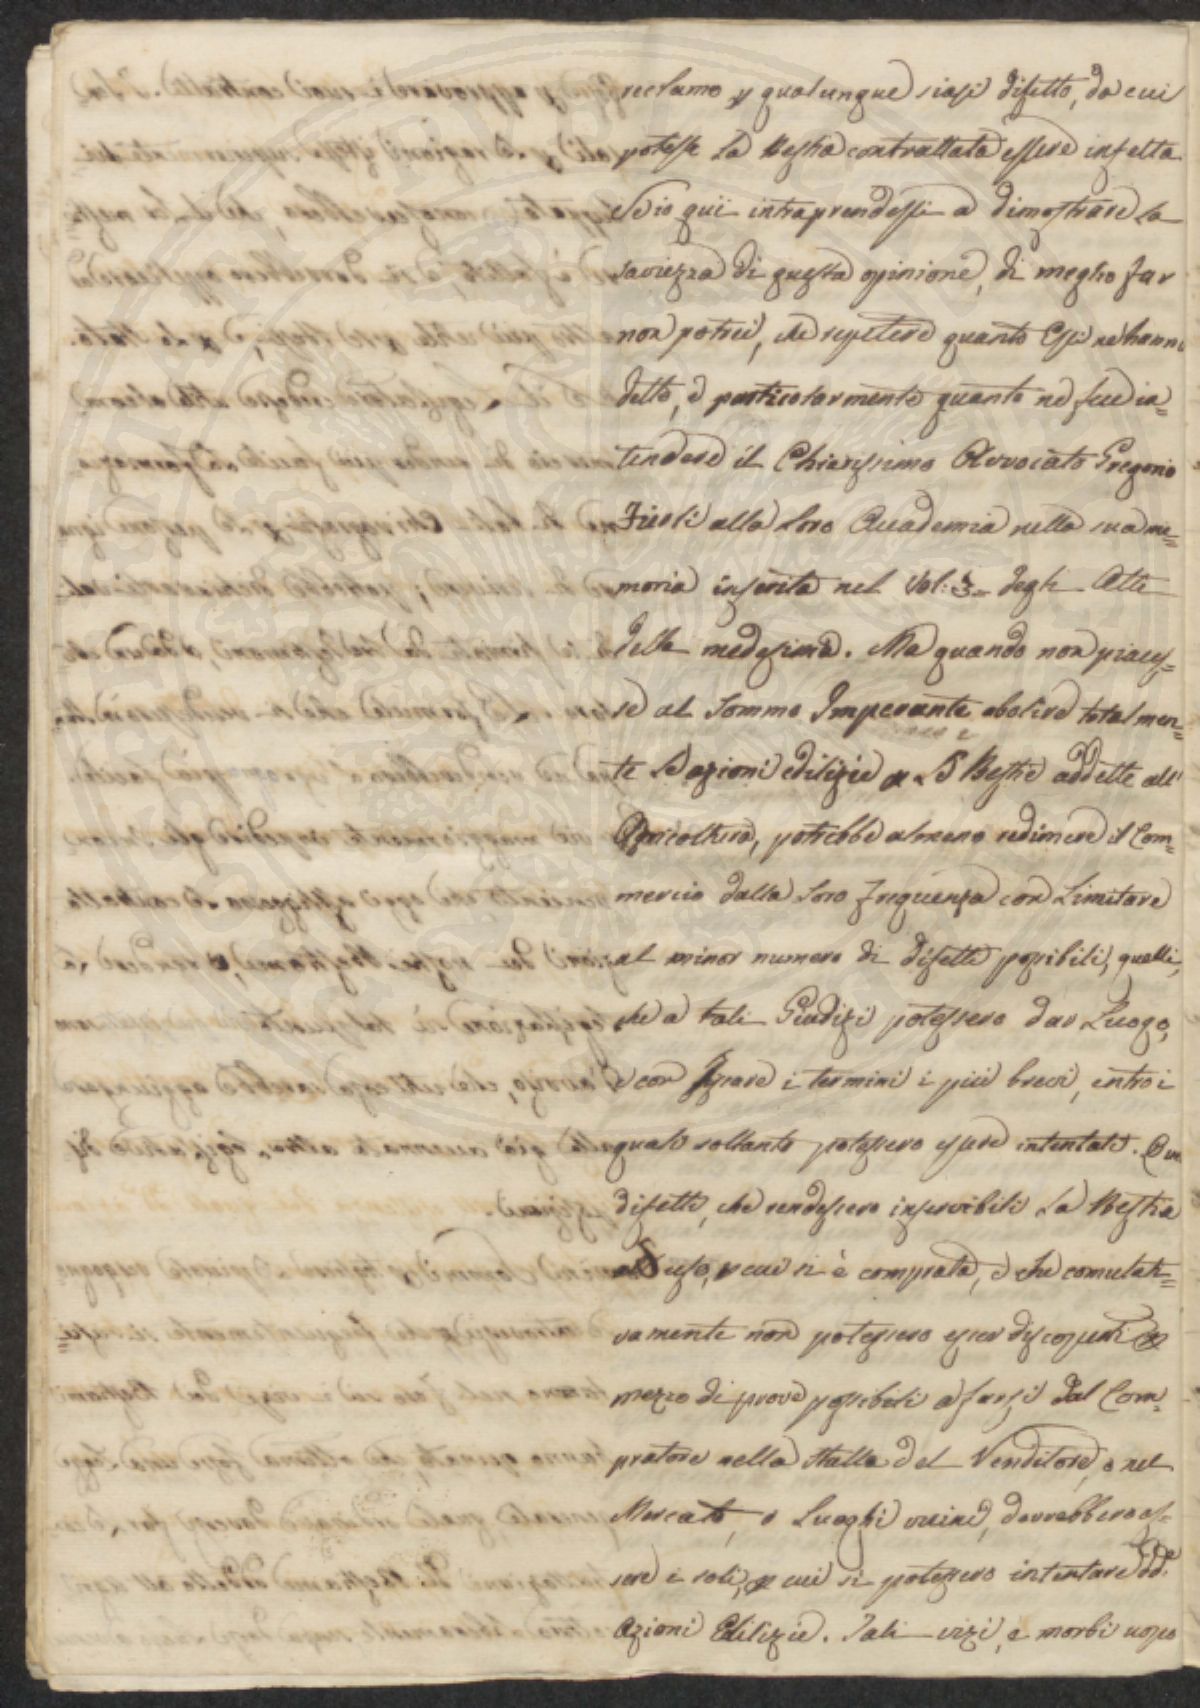 reclamo p qualunque siasi difetto, da cui
potesse la Bestia contrattata essere infetta
Se io quì intraprendessi a dimostrare la
saviezza di questa opinione, di meglio far
non potrei, che repetere quanto Essi ne hanno
detto, e particolarmente quanto ne fece in=
tendere il Chiarissimo Avvocato Gregorio
Fierli alla loro Accademia nella sua me=
moria inserita nel Vol: 3.= degli Atti
della medesima. Ma quando non piaces=
se al Sommo Imperante abolire totalmen=
te le azioni edilizie p le Bestie addette all'
Agricoltura, potrebbe almeno redimere il Com=
mercio dalla loro frequenza con limitare
al minor numero di difetti possibili, quelli,
che a tali Giudizi potessero dar luogo,
e con fissare i termini i più brevi, entro i
quali soltanto potessero essere intentati.
difetti, che rendessero inservibili la Bestia
uso, p cui si è comprata, e che comulati=
vamente non potessero esser discoperti p
mezzo di prove possibili a farsi dal Com=
pratore nella stalla del Venditore, o nel
Mercato, o luoghi vicini, dovrebbero es=
sere i soli, p cui si potessero intentare dde.
Azioni Edilizie. Tali vizi, e morbi